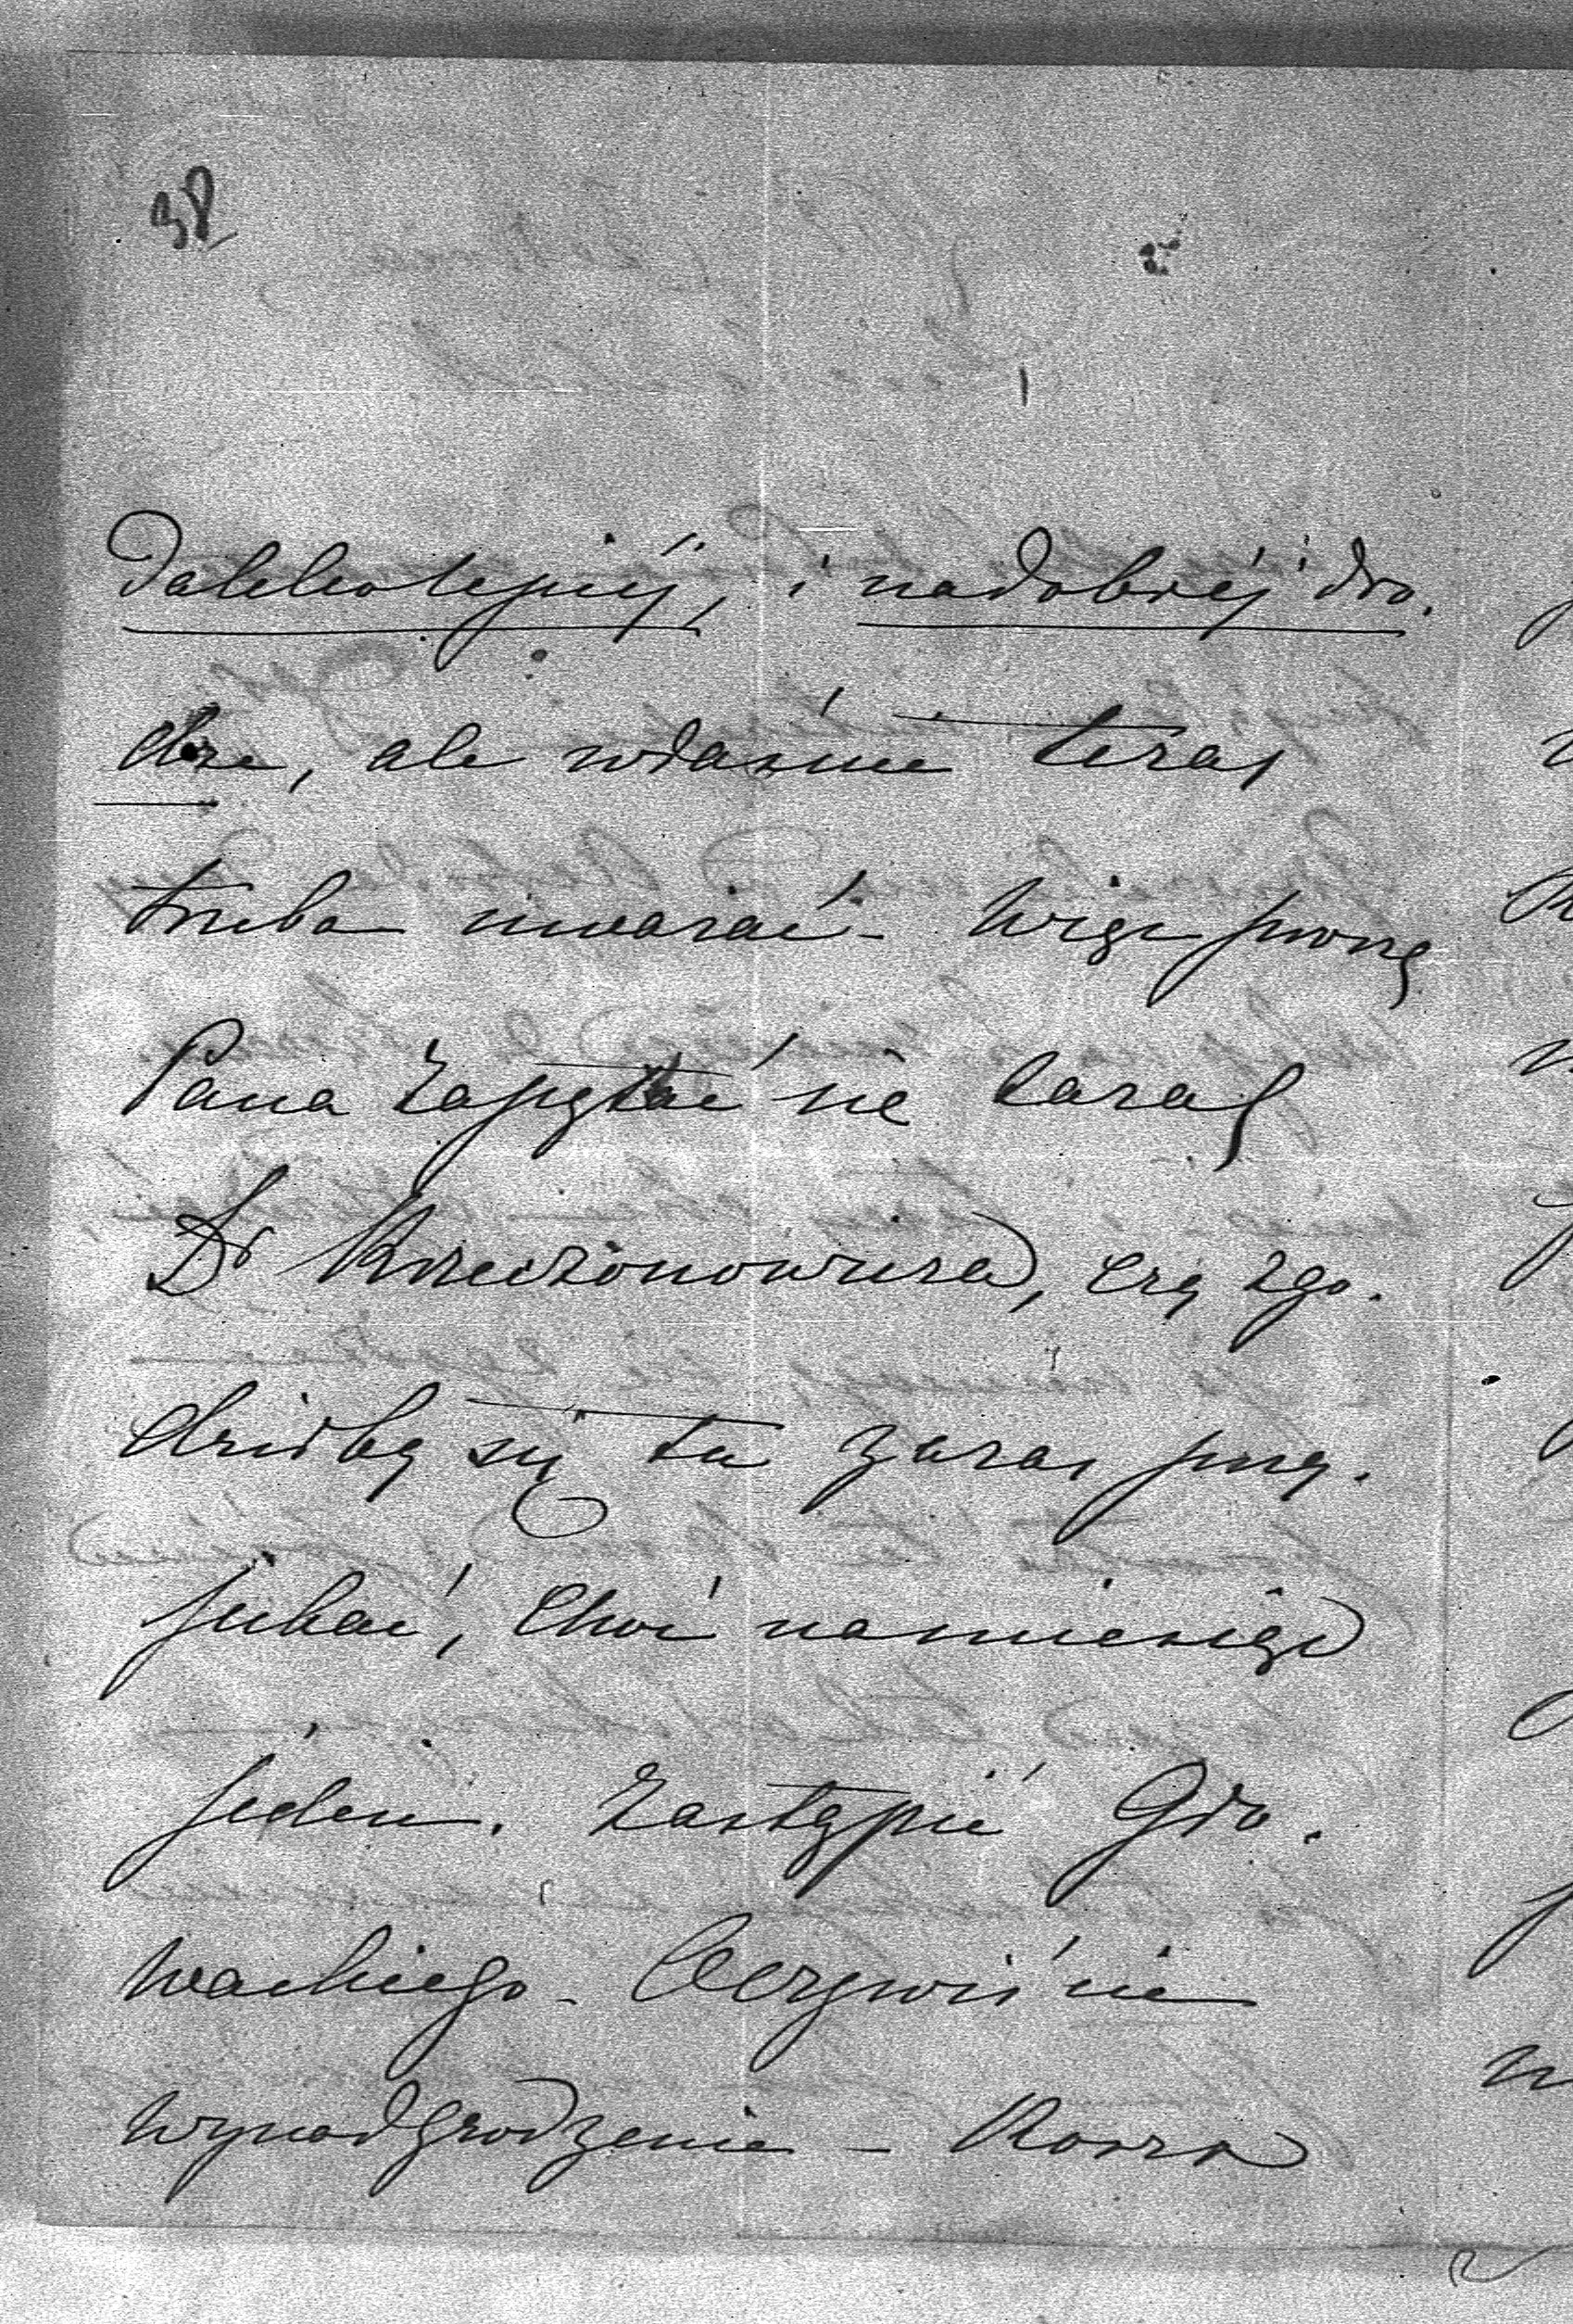 38
Daleko lepiéj, i na dobréj dro.
dze, ale właśnie teraz
trzeba uważać – Więc proszę
Pana zapytać się zaraz
Dr Krzeczonowicza, czy zgo.
dziłby się tu zaraz przy.
jechać, choć na miesiąc
jeden. Zastąpić Gło.
wackiego – Oczywiście
wynadgrodzenie – Koszta